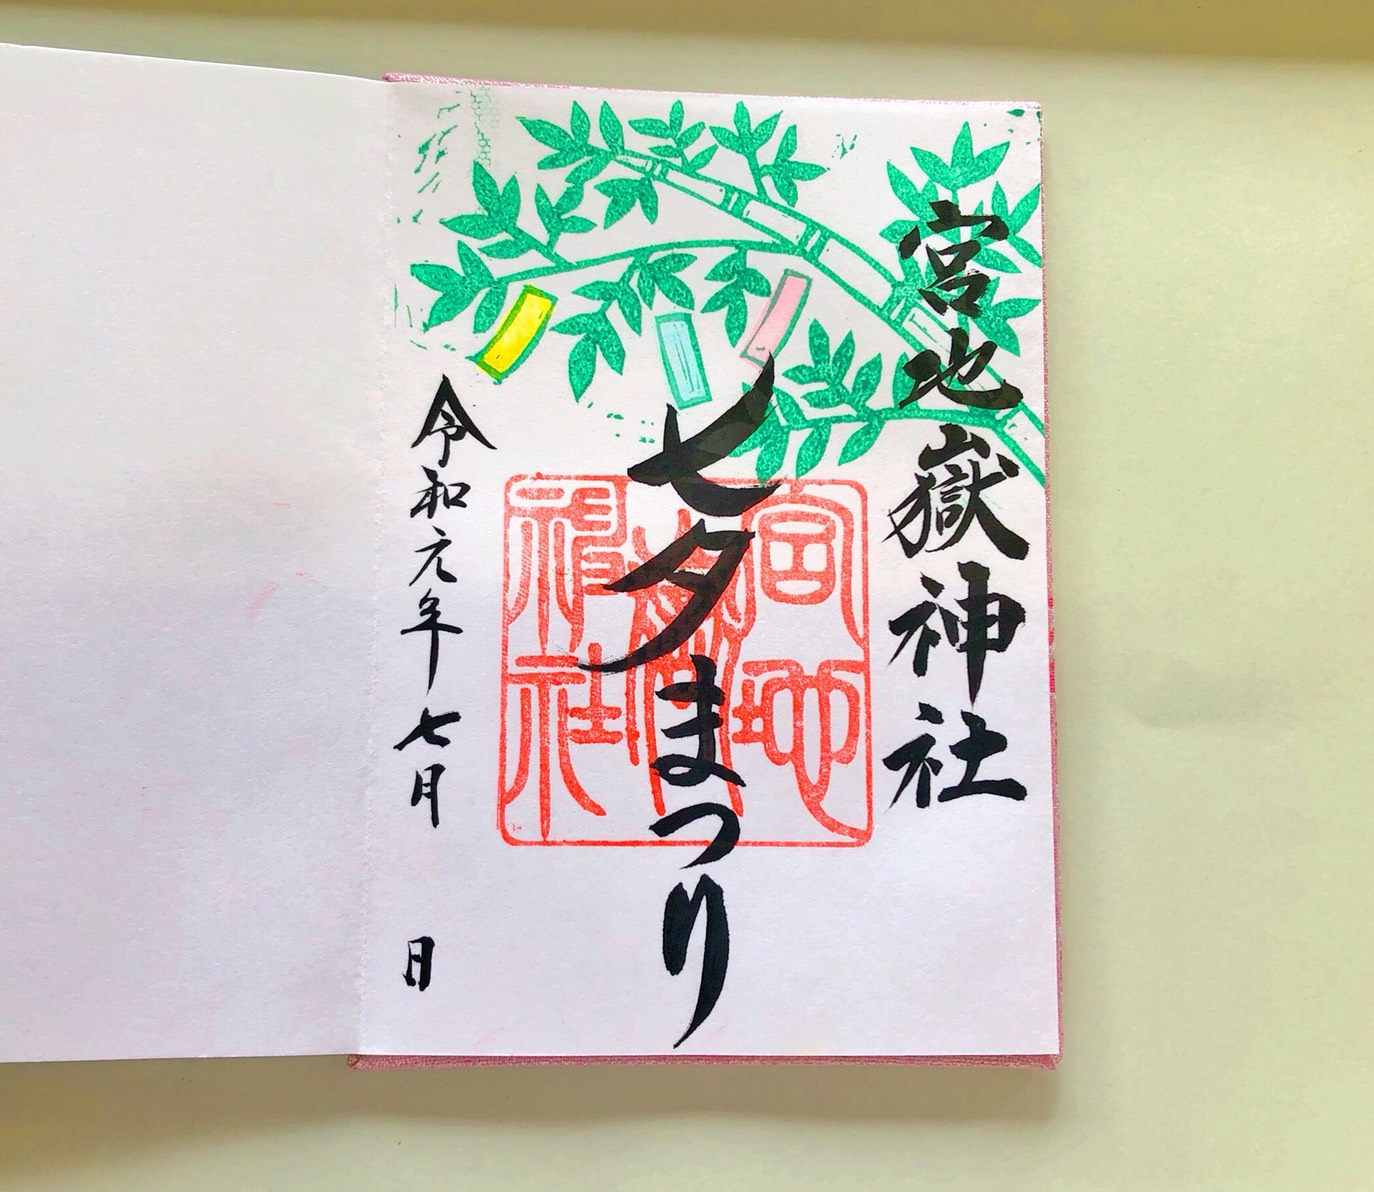 宮地嶽神社
七夕まつり
宮地嶽神社
令和元年七月 日